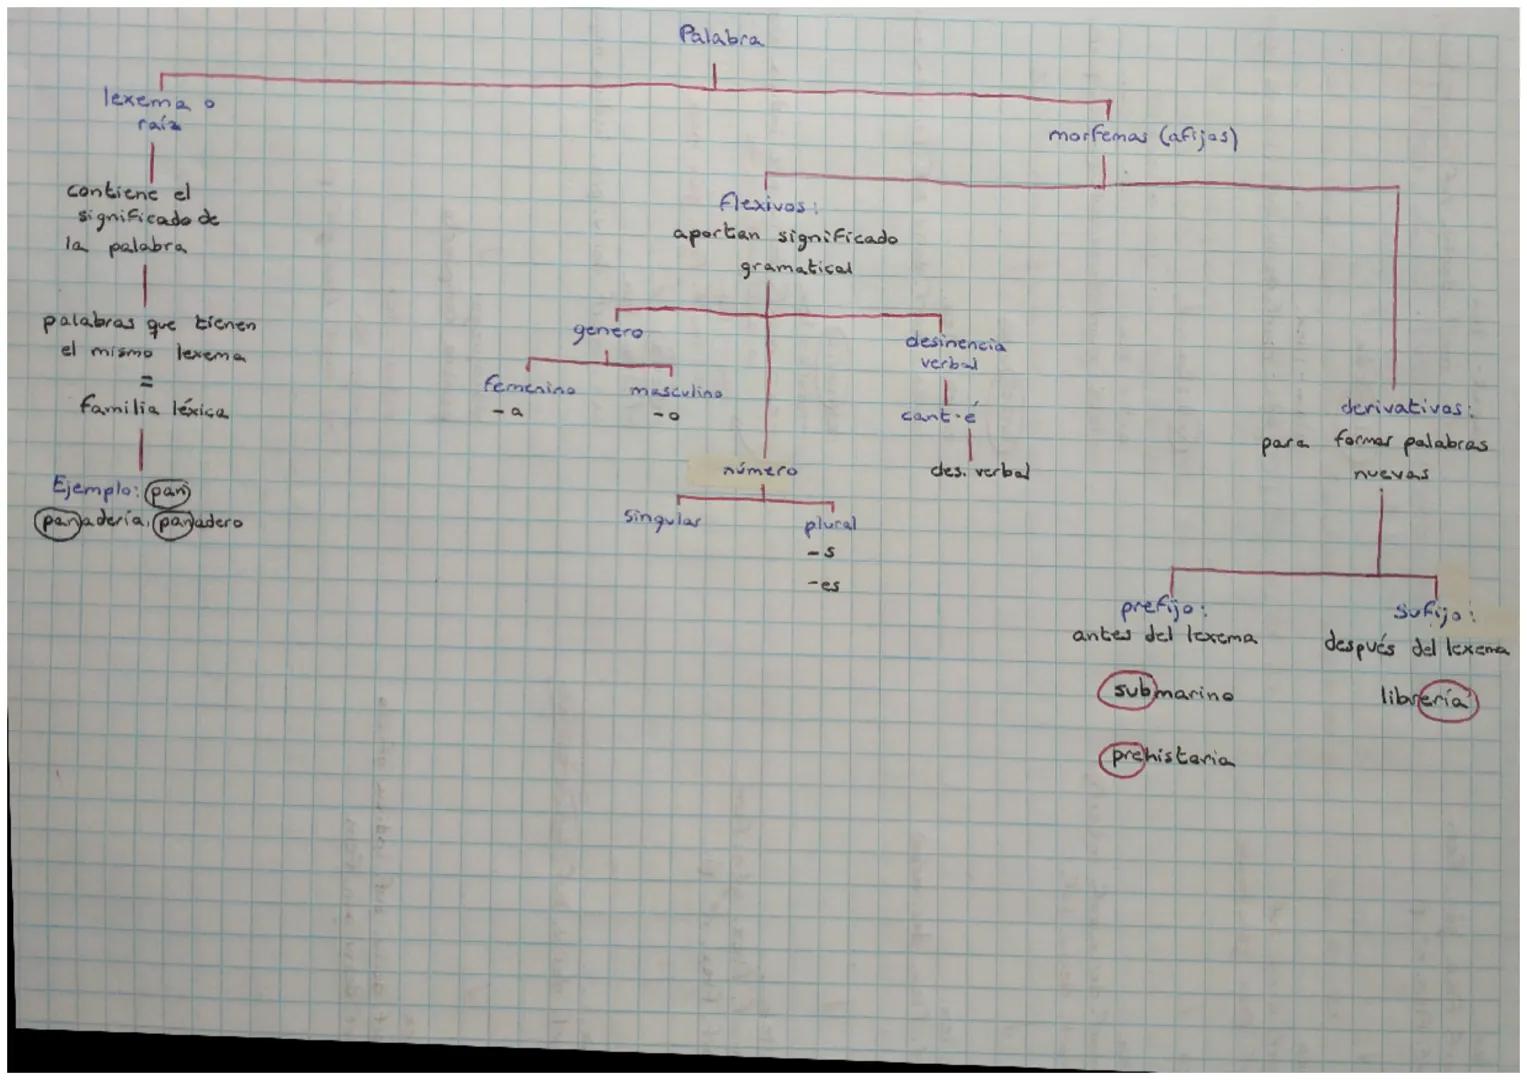 Palabra
lexema o
raíz
contiene el
significado de
la palabra
palabras que tienen
el mismo lexema
=
familia léxica
Ejemplo: pan
panadería, panadero
morfemas (afijos)
flexivos:
aportan significado
gramatical
genero
femenino
- a
masculino
- o
número
singular
plural
- s
- es
desinencia
verbal
cant-é
des. verbal
derivativos:
para formar palabras
nuevas
prefijo:
antes del lexema
submarino
prehistoria
sufijo:
después del lexema
librería